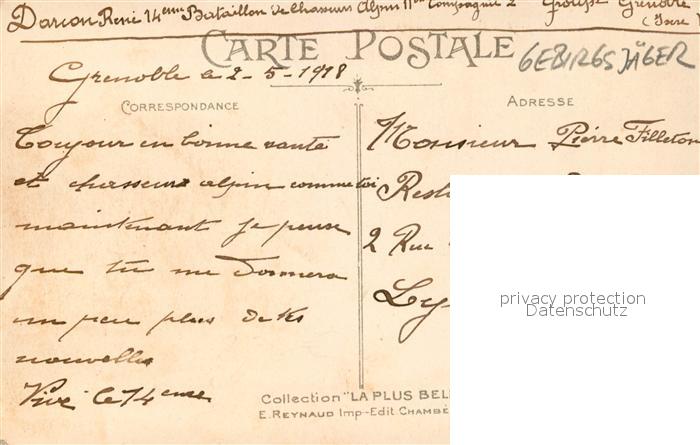 Darion René 14eme Bataillon de Chasseurs Alpin 11me Compagnie 2 Groupe Grenoble
(Isère
CARTE POSTALE
GEBIRGSJÄGER
Grenoble le 2-5-1918
CORRESPONDANCE
ADRESSE
Toujour en bonne santé
et chasseurs alpin comme toi
maintenant je pense
que tu me donnera
un peu plus de tes
nouvelles
Vive le 14eme
Monsieur Pierre Filleton
Rest
2 Rue
Ly
privacy protection
Datenschutz
Collection "LA PLUS BEL
E. REYNAUD Imp-Edit CHAMBÉ